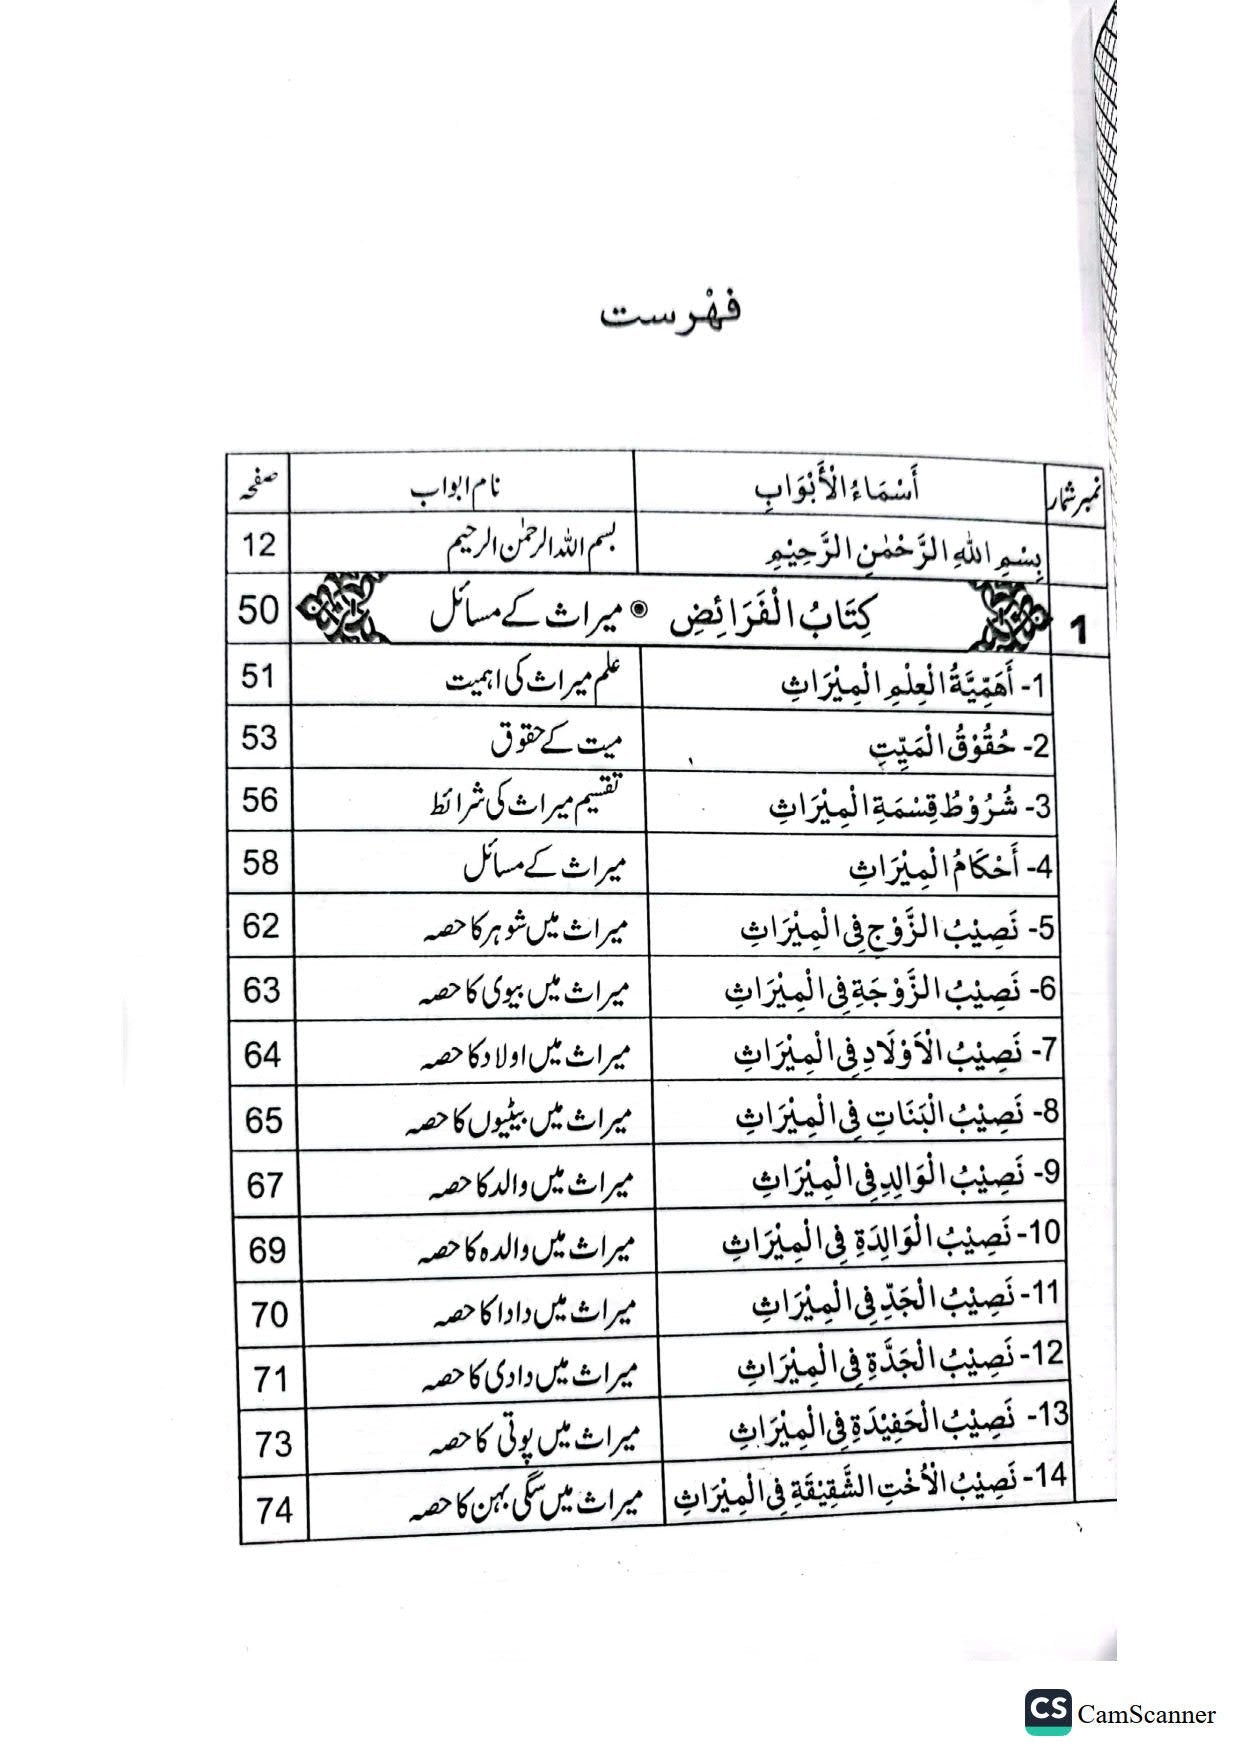 فہرست
نمبر شمار أَسْمَاءُ الْأَبْوَابِ نام ابواب صفحہ
بِسْمِ اللهِ الرَّحْمٰنِ الرَّحِيْمِ بسم اللہ الرحمٰن الرحیم 12
1 كِتَابُ الْفَرَائِضِ ◉ میراث کے مسائل 50
1- أَهَمِّيَّةُ الْعِلْمِ الْمِيْرَاثِ علم میراث کی اہمیت 51
2- حُقُوْقُ الْمَيِّتِ میت کے حقوق 53
3- شُرُوْطُ قِسْمَةِ الْمِيْرَاثِ تقسیم میراث کی شرائط 56
4- أَحْكَامُ الْمِيْرَاثِ میراث کے مسائل 58
5- نَصِيْبُ الزَّوْجِ فِى الْمِيْرَاثِ میراث میں شوہر کا حصہ 62
6- نَصِيْبُ الزَّوْجَةِ فِى الْمِيْرَاثِ میراث میں بیوی کا حصہ 63
7- نَصِيْبُ الْاَوْلَادِ فِى الْمِيْرَاثِ میراث میں اولاد کا حصہ 64
8- نَصِيْبُ الْبَنَاتِ فِى الْمِيْرَاثِ میراث میں بیٹیوں کا حصہ 65
9- نَصِيْبُ الْوَالِدِ فِى الْمِيْرَاثِ میراث میں والد کا حصہ 67
10- نَصِيْبُ الْوَالِدَةِ فِى الْمِيْرَاثِ میراث میں والدہ کا حصہ 69
11- نَصِيْبُ الْجَدِّ فِى الْمِيْرَاثِ میراث میں دادا کا حصہ 70
12- نَصِيْبُ الْجَدَّةِ فِى الْمِيْرَاثِ میراث میں دادی کا حصہ 71
13- نَصِيْبُ الْحَفِيْدَةِ فِى الْمِيْرَاثِ میراث میں پوتی کا حصہ 73
14- نَصِيْبُ الْاُخْتِ الشَّقِيْقَةِ فِى الْمِيْرَاثِ میراث میں سگی بہن کا حصہ 74
CS CamScanner